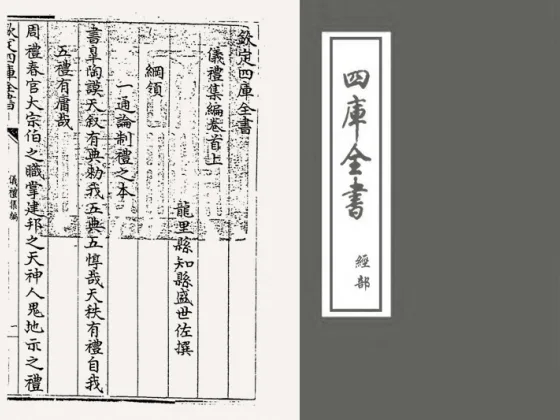 欽定四庫全書
儀禮集編卷首上
龍里縣知縣盛世佐撰
綱領
一通論制禮之本
書臯陶謨天叙有典勅我五典五惇哉天秩有禮自我
五禮有庸哉
周禮春官大宗伯之職掌建邦之天神人鬼地示之禮
欽定四庫全書
儀禮集編
一
四庫全書
經部